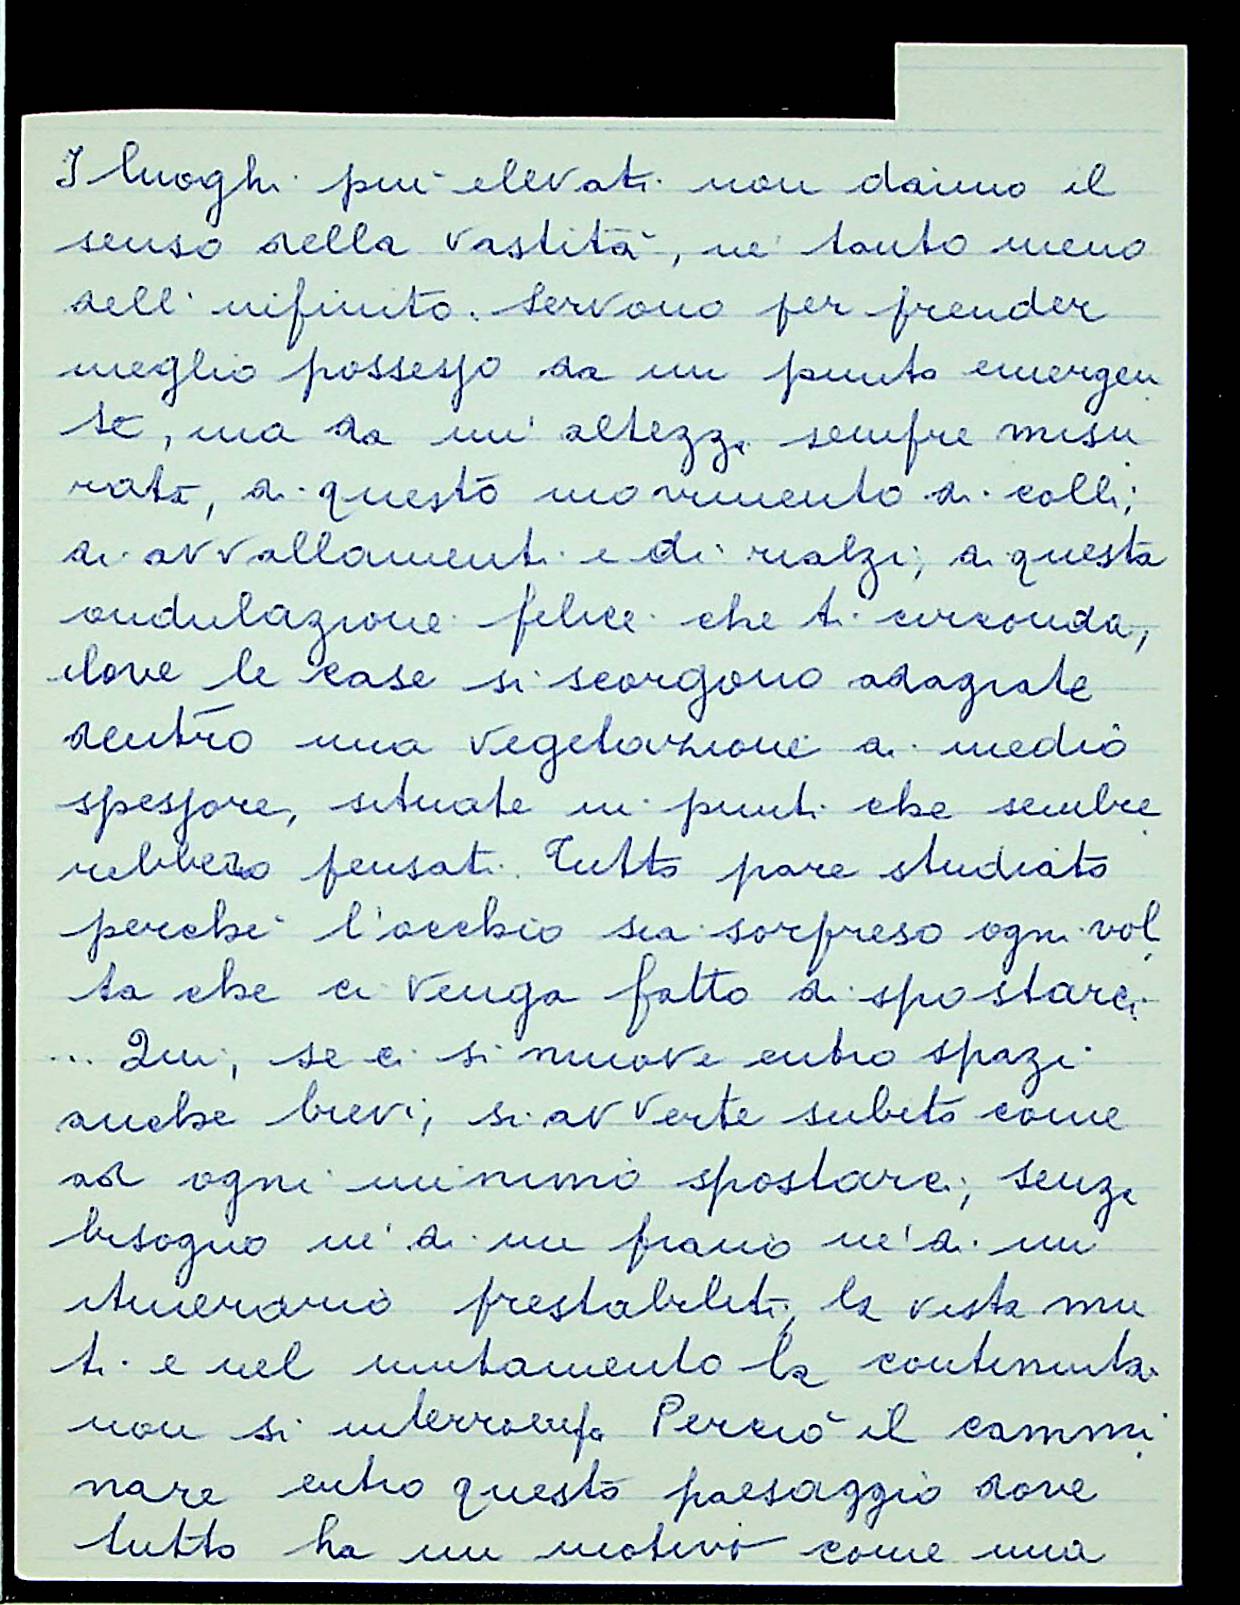 I luoghi più elevati non danno il
senso della vastità, né tanto meno
dell'infinito. Servono per prender
meglio possesso da un punto emergen
te, ma da un'altezza sempre misu
rata, di questo movimento di colli,
di avvallamenti e di rialzi, di questa
ondulazione felice che ti circonda,
dove le case si scorgono adagiate
dentro una vegetazione di medio
spessore, situate in punti che sembre
rebbero pensati. Tutto pare studiato
perché l'occhio sia sorpreso ogni vol
ta che ci venga fatto di spostarci.
... Qui, se ci si muove entro spazi
anche brevi, si avverte subito come
ad ogni minimo spostarci, senza
bisogno né di un piano né di un
itinerario prestabiliti, la vista mu
ti e nel mutamento la continuità
non si interrompa Perciò il cammi
nare entro questo paesaggio dove
tutto ha un motivo come una